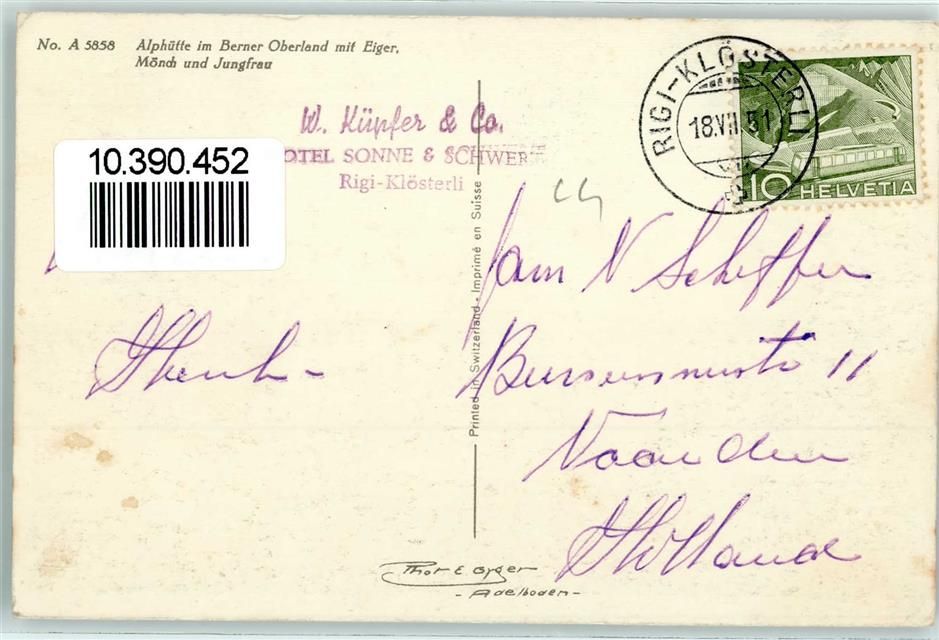 No. A 5858 Alphütte im Berner Oberland mit Eiger,
Mönch und Jungfrau
10.390.452
W. Küpfer & Co.
OTEL SONNE & SCHWER
Rigi-Klösterli
RIGI-KLÖSTERLI
18.VII.51
10 HELVETIA
Printed in Switzerland - Imprimé en Suisse
N Scheffer
11
Naarden
Holland
Phot E. Gyger
- Adelboden -